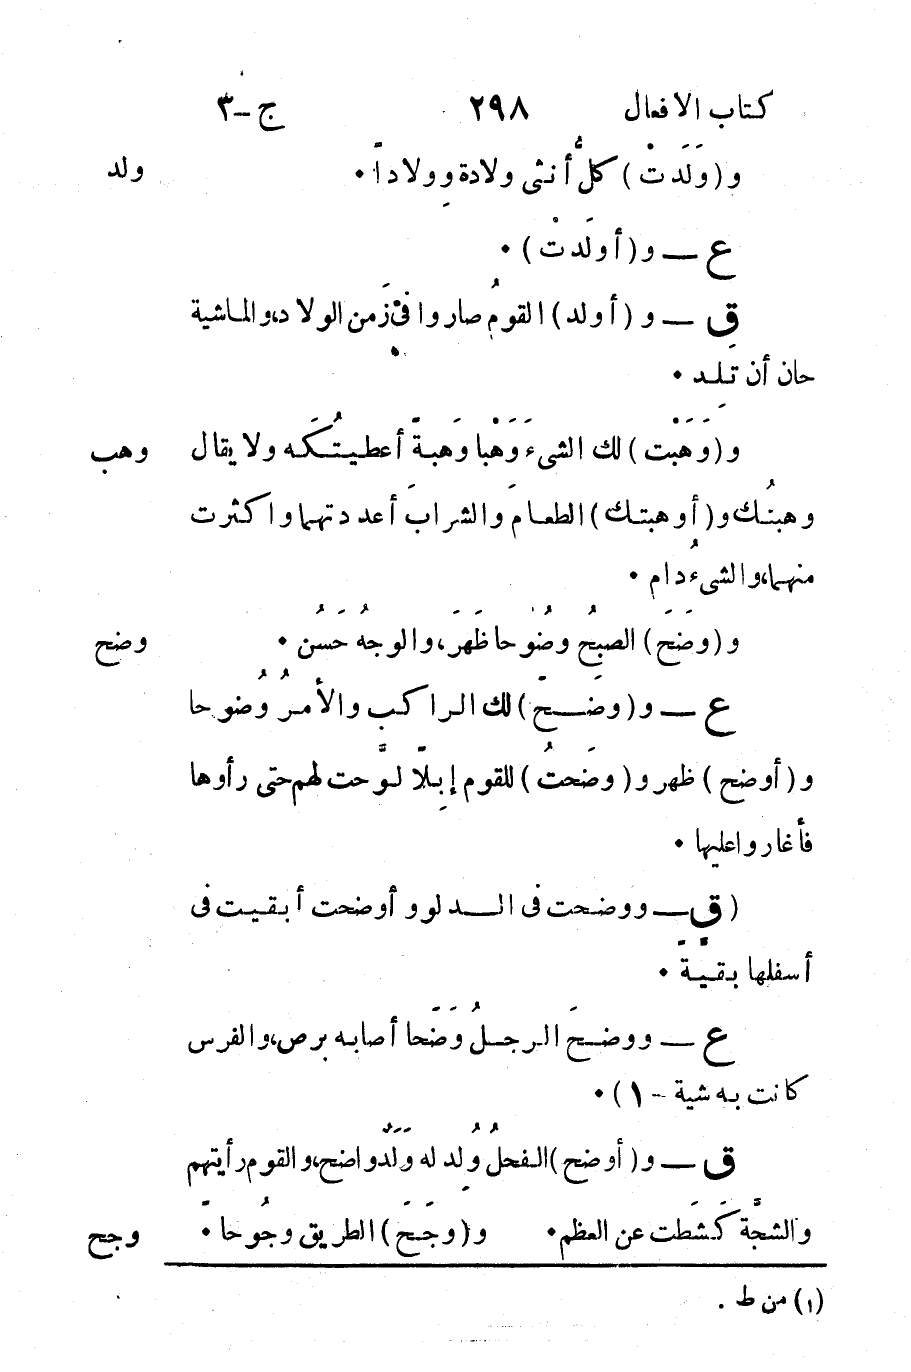 كتاب الافعال ٢٩٨ ج-٣
و(وَلَدَتْ) كلُّ أنثى ولادة ووِلاداً • ولد
ع — و(أولَدتْ) •
ق — و (أولد) القومُ صاروا فى زَمن الولاد، والماشية
حان أن تَلِد •
و(وَهَبْت) لك الشىءَ وَهْبا وَهَبةً أعطيتُكَه ولا يقال وهب
وهبتُك و(أوهبتك) الطعامَ والشرابَ أعددتهما واكثرت
منهما، والشىءُ دام •
و(وضَحَ) الصبحُ وضُوحا ظهَرَ، والوجهُ حَسُن • وضح
ع — و(وضَح) لك الراكب والأمرُ وُضوحا
و(أوضح) ظهر و(وضَحتُ) للقوم إبِلاً لوَّحت لهم حتى رأوها
فأغاروا عليها •
(ق — ووضحت فى الدلو وأوضحت أبقيت فى
أسفلها بقيَّةً •
ع — ووضحَ الرجلُ وَضَحا أصابه برص، والفرس
كانت به شية - ١) •
ق — و(أوضح) الفحلُ وُلِد له وَلَد واضح، والقوم رأيتهم
والشجَّة كَشَطت عن العظم • و(وجَحَ) الطريق وجُوحاً • وجح
(١) من ط .